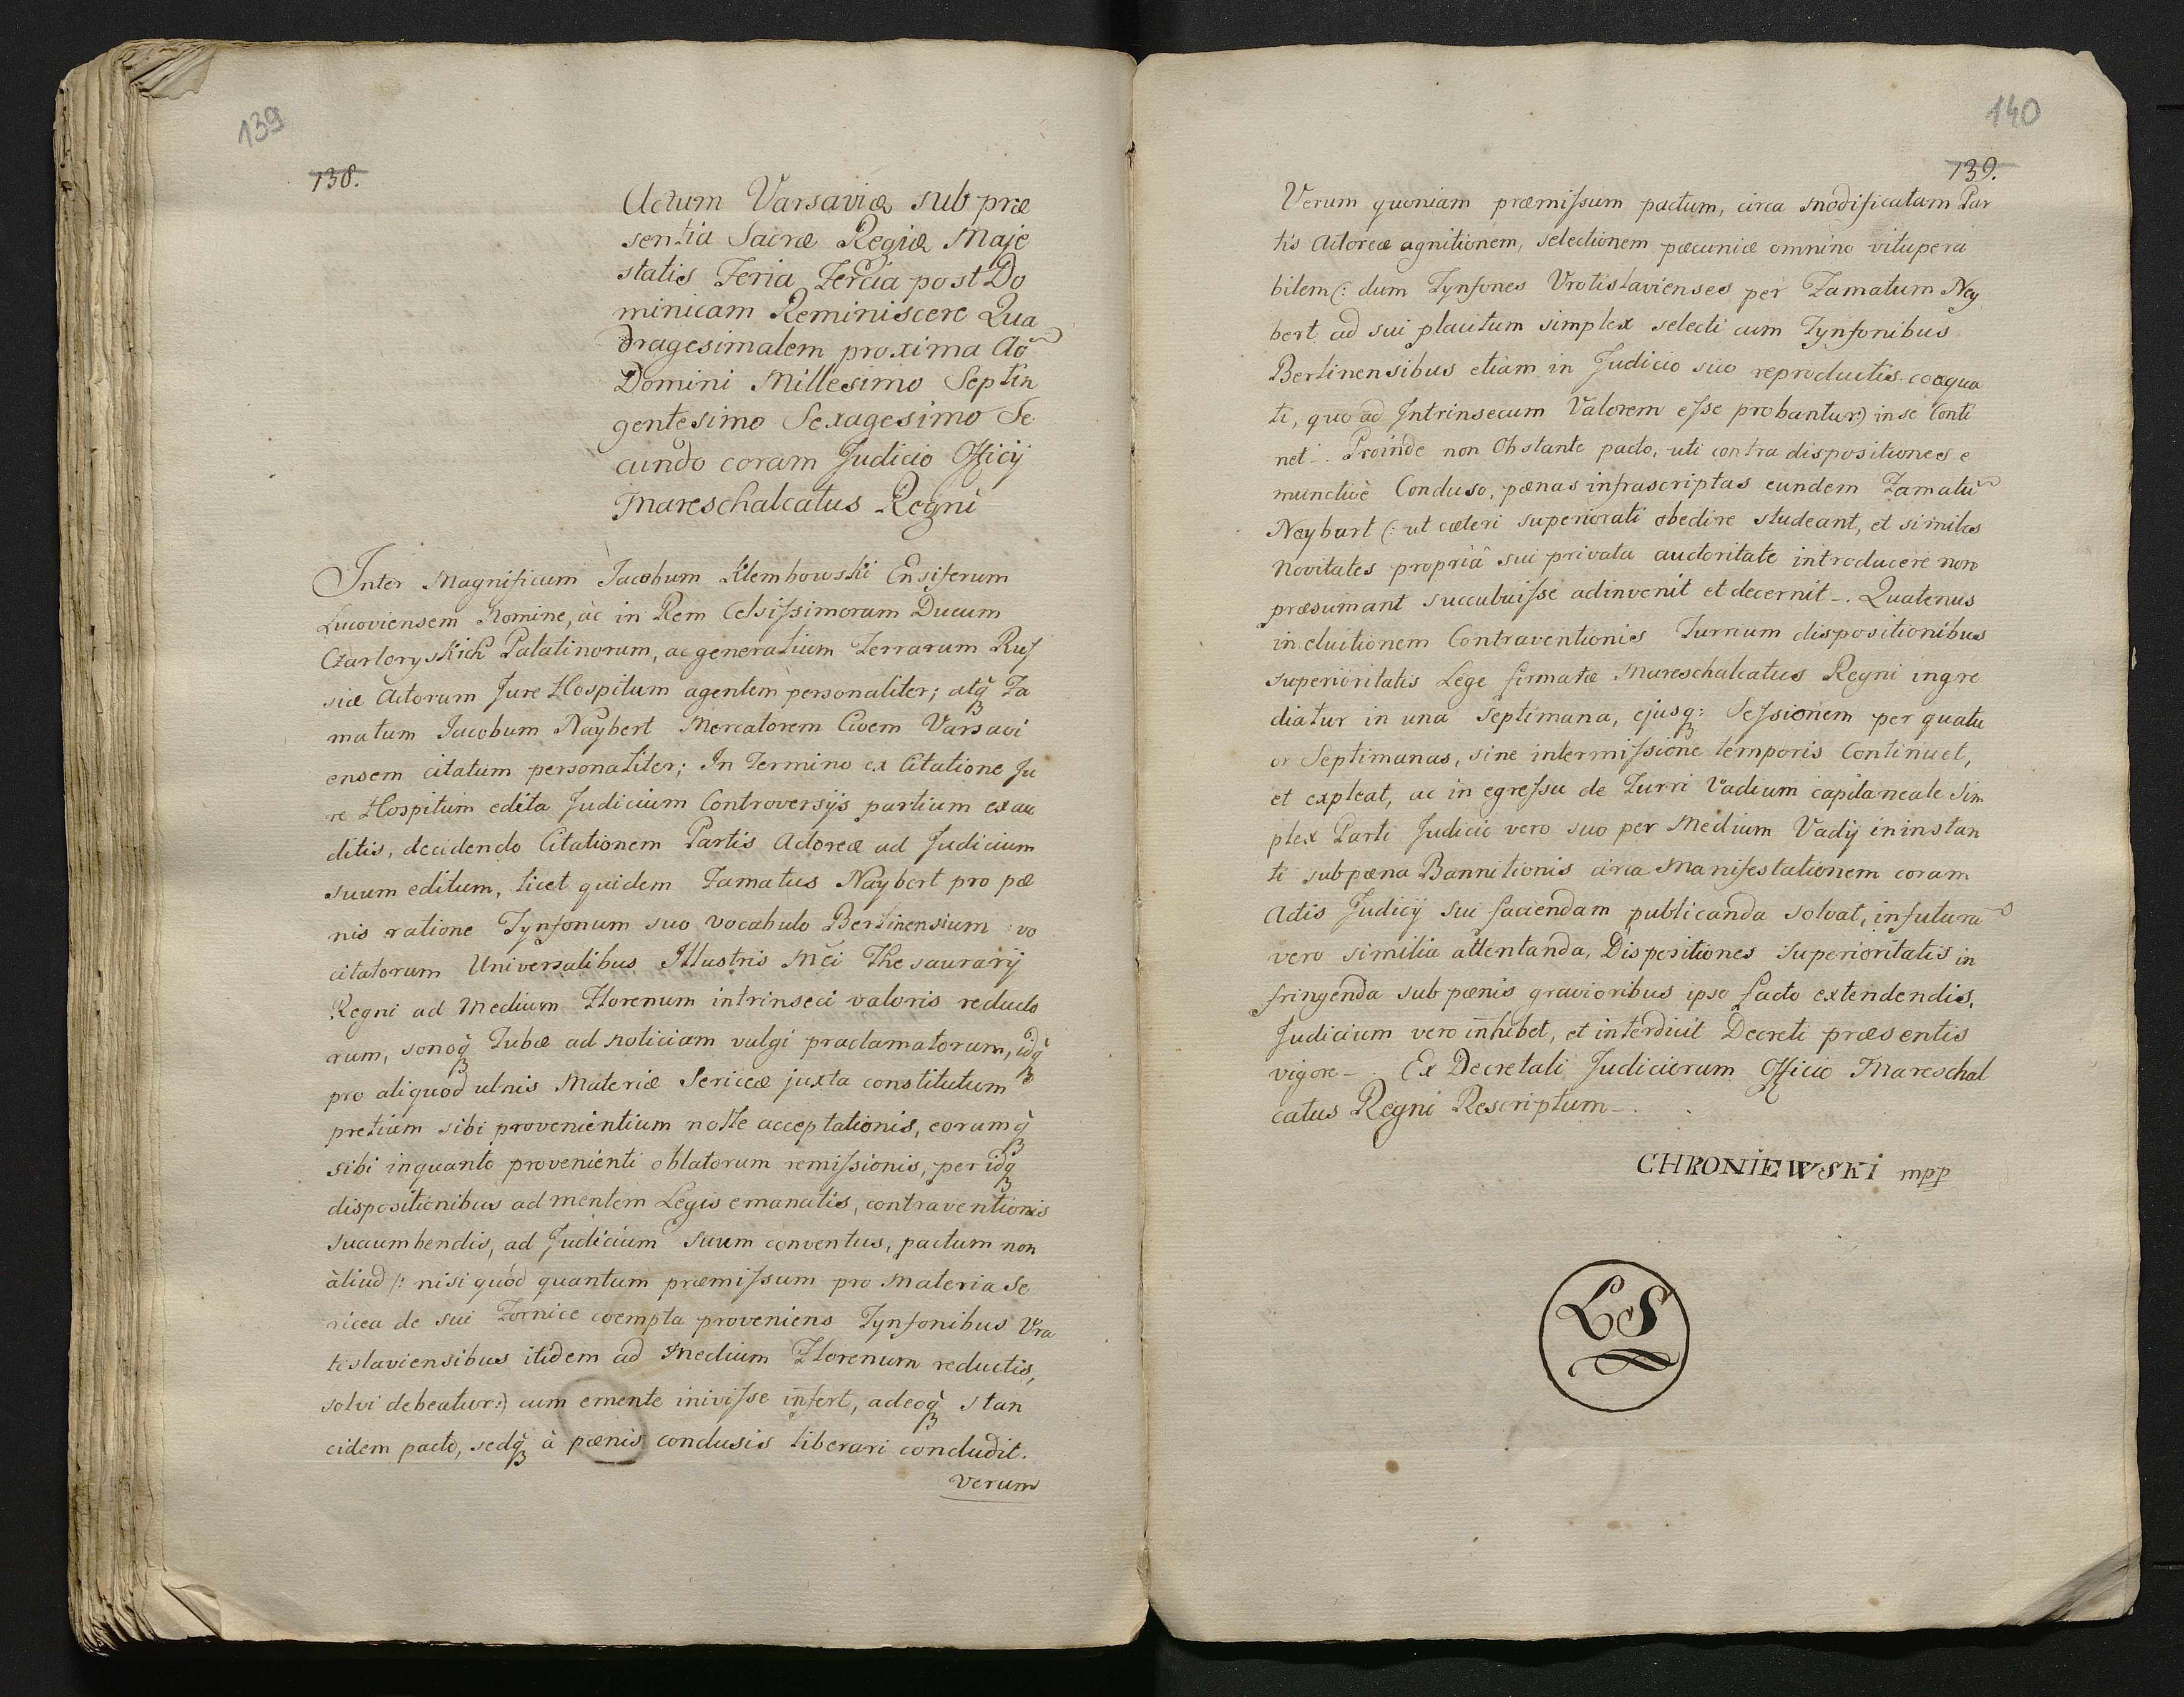 139
138.
Actum Varsaviæ sub præ
sentia Sacræ Regiæ Maje
statis Feria Tercia post Do
minicam Reminiscere Qua
dragesimalem proxima Aō
Domini Millesimo Septin
gentesimo Sexagesimo Se
cundo coram Judicio Officij
Mareschalcatus Regni
Inter Magnificum Jacobum Klembowski Ensiferum
Lucoviensem Nomine, ac in Rem Celsissimorum Ducum
Czartoryskich Palatinorum, ac generalium Terrarum Rus
siæ Actorum Jure Hospitum agentem personaliter; atq̃ Fa
matum Jacobum Naybert Mercatorem Civem Varsavi
ensem citatum personaliter; In Termino ex Citatione Ju
re Hospitum edita Judicium Controversijs partium exau
ditis, decidendo Citationem Partis Actoreæ ad Judicium
suum editum, licet quidem Famatus Naybert pro pæ
nis ratione Tynfonum suo vocabulo Berlinensium vo
citatorum Universalibus Illustris Mc̃i Thesaurarij
Regni ad Medium Florenum intrinseci valoris reducto
rum, sonoq̃ Tubæ ad noticiam vulgi praclamatorum, idq̃
pro aliquod ulnis Materiæ Sericeæ juxta constitutum
pretium sibi provenientium nolle acceptationis, eorumq̃
sibi inquanto provenienti oblatorum remissionis, per idq̃
dispositionibus ad mentem Legis emanatis, contraventionis
sucumbendis, ad Judicium suum conventus, pactum non
àliud (: nisi quód quantum præmissum pro Materia Se
ricea de sui Fornice coempta proveniens Tynfonibus Vra
tislaviensibus itidem ad Medium Florenum reductis,
solvi debeatur:) cum emente inivisse infert, adeoq̃ stan
cidem pacto, sedq̃ à pænis conclusis liberari concludit.
Verum
140
139.
Verum quoniam præmissum pactum, circa modificatam Par
tis Actoreæ agnitionem, selectionem pæcuniæ omnino vitupera
bilem (: dum Tynfones Vrotislavienses per Famatum Ney
bert ad sui placitum simplex selecti cum Tynfonibus
Berlinensibus etiam in Judicio suo reproductis coæqua
ti, quo ad Intrinsecum Valorem esse probantur:) in se Conti
net. Proinde non Obstante pacto, uti contra dispositiones e
munctivè Concluso, pænas infrascriptas eundem Famatũ
Naybart (: ut cæteri superiorati obedire studeant, et similes
Novitates propriâ sui privata auctoritate introducere non
præsumant succubuisse adinvenit et decernit. Quatenus
in eluitionem Contraventionis Turrium dispositionibus
superioritatis Lege firmatæ Mareschalcatus Regni ingre
diatur in una Septimana, ejusq: Sessionem per quatu
or Septimanas, sine intermissione temporis Continuet,
et expleat, ac in egressu de Turri Vadium capitaneale Sim
plex Parti Judicii vero suo per Medium Vadij in instan
ti sub pæna Bannitionis circa Manifestationem coram
Actis Judicij sui faciendam publicanda solvat, in futurũ
vero similia attentanda, Dispositiones Superioritatis in
fringenda sub pænis gravioribus ipso facto extendendis,
Judicium vero inhibet, et interdicit Decreti præsentis
vigore. Ex Decretali Judiciorum Officio Mareschal
catus Regni Rescriptum.
CHRONIEWSKI mpp
LS